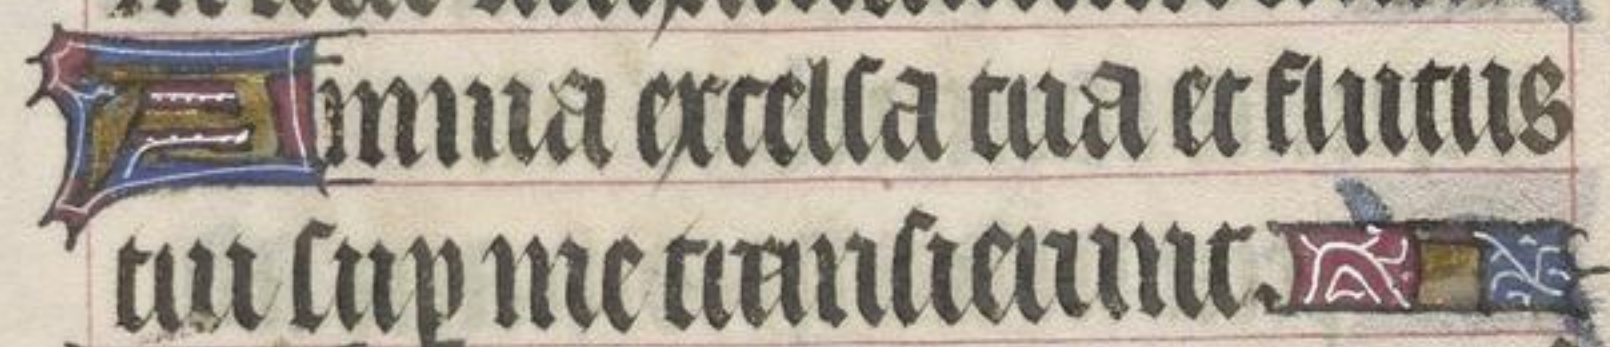 Omnia excelsa tua et fluctus
tui sup me transierunt.